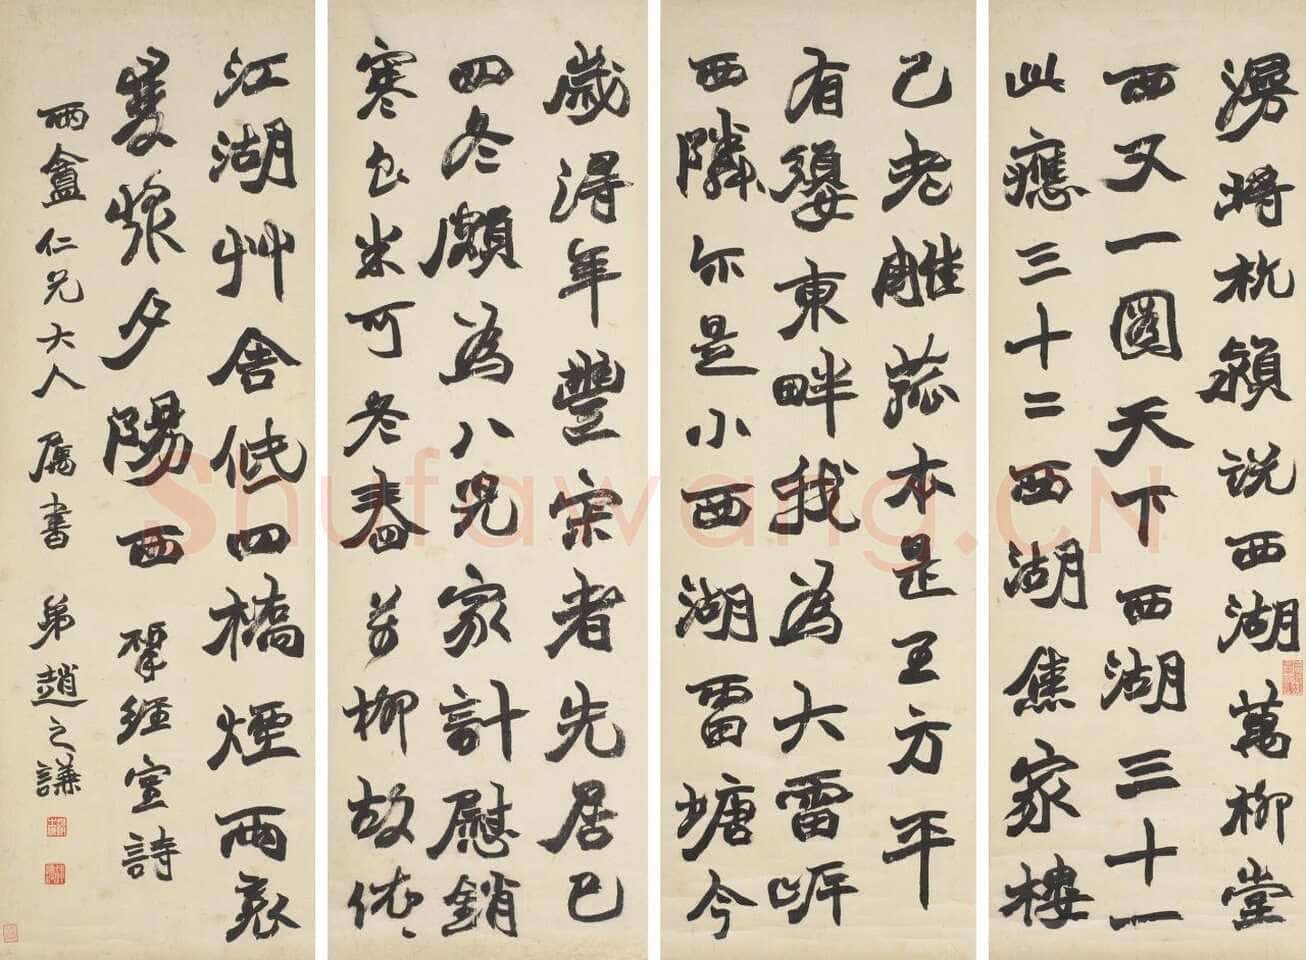 漫將杭潁說西湖萬柳堂
西又一圖天下西湖三十一
此應三十二西湖焦家樓
已老雕菰本是王方平
有嬃東畔我為大雷岸
西隣尔是小西湖雷塘今
歲得年豐宋者先居已
四冬頗為八兄家計慰銷
寒米可冬舂柳故依依
江湖艸舍低四橋煙雨裏
雙槳夕陽西 揅經室詩
盦仁兄大人屬書 弟趙之謙
Shufawang.CN